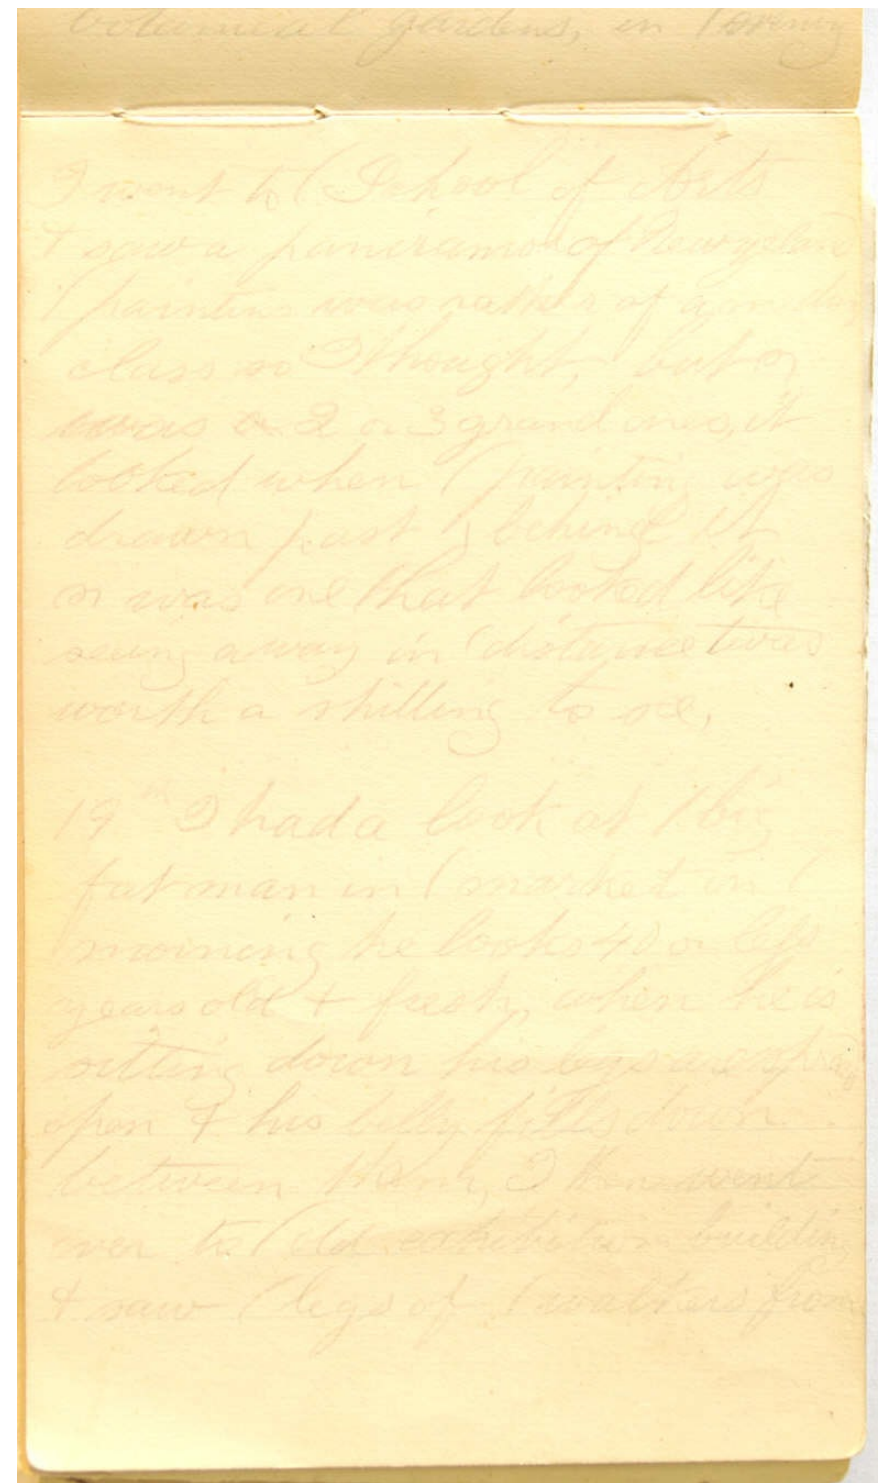 botanical gardens, in ( evening
I went to ( School of Arts
& saw a paniramo of Newzeland
( painting was rather of a
class so I thought, but
was a 2 or 3 grand ones, it
looked when ( painting was
drawn past & behind it
was one that looked like
seeing away in ( distance twas
worth a shilling to see,
19th I had a look at ( big
fat man in ( market in (
morning he looks 40 or less
years old & fresh, when he is
sitting down his legs are spread
open & his belly fills down
between them, I then went
over to ( old exhibition building
& saw ( legs of ( walkers from